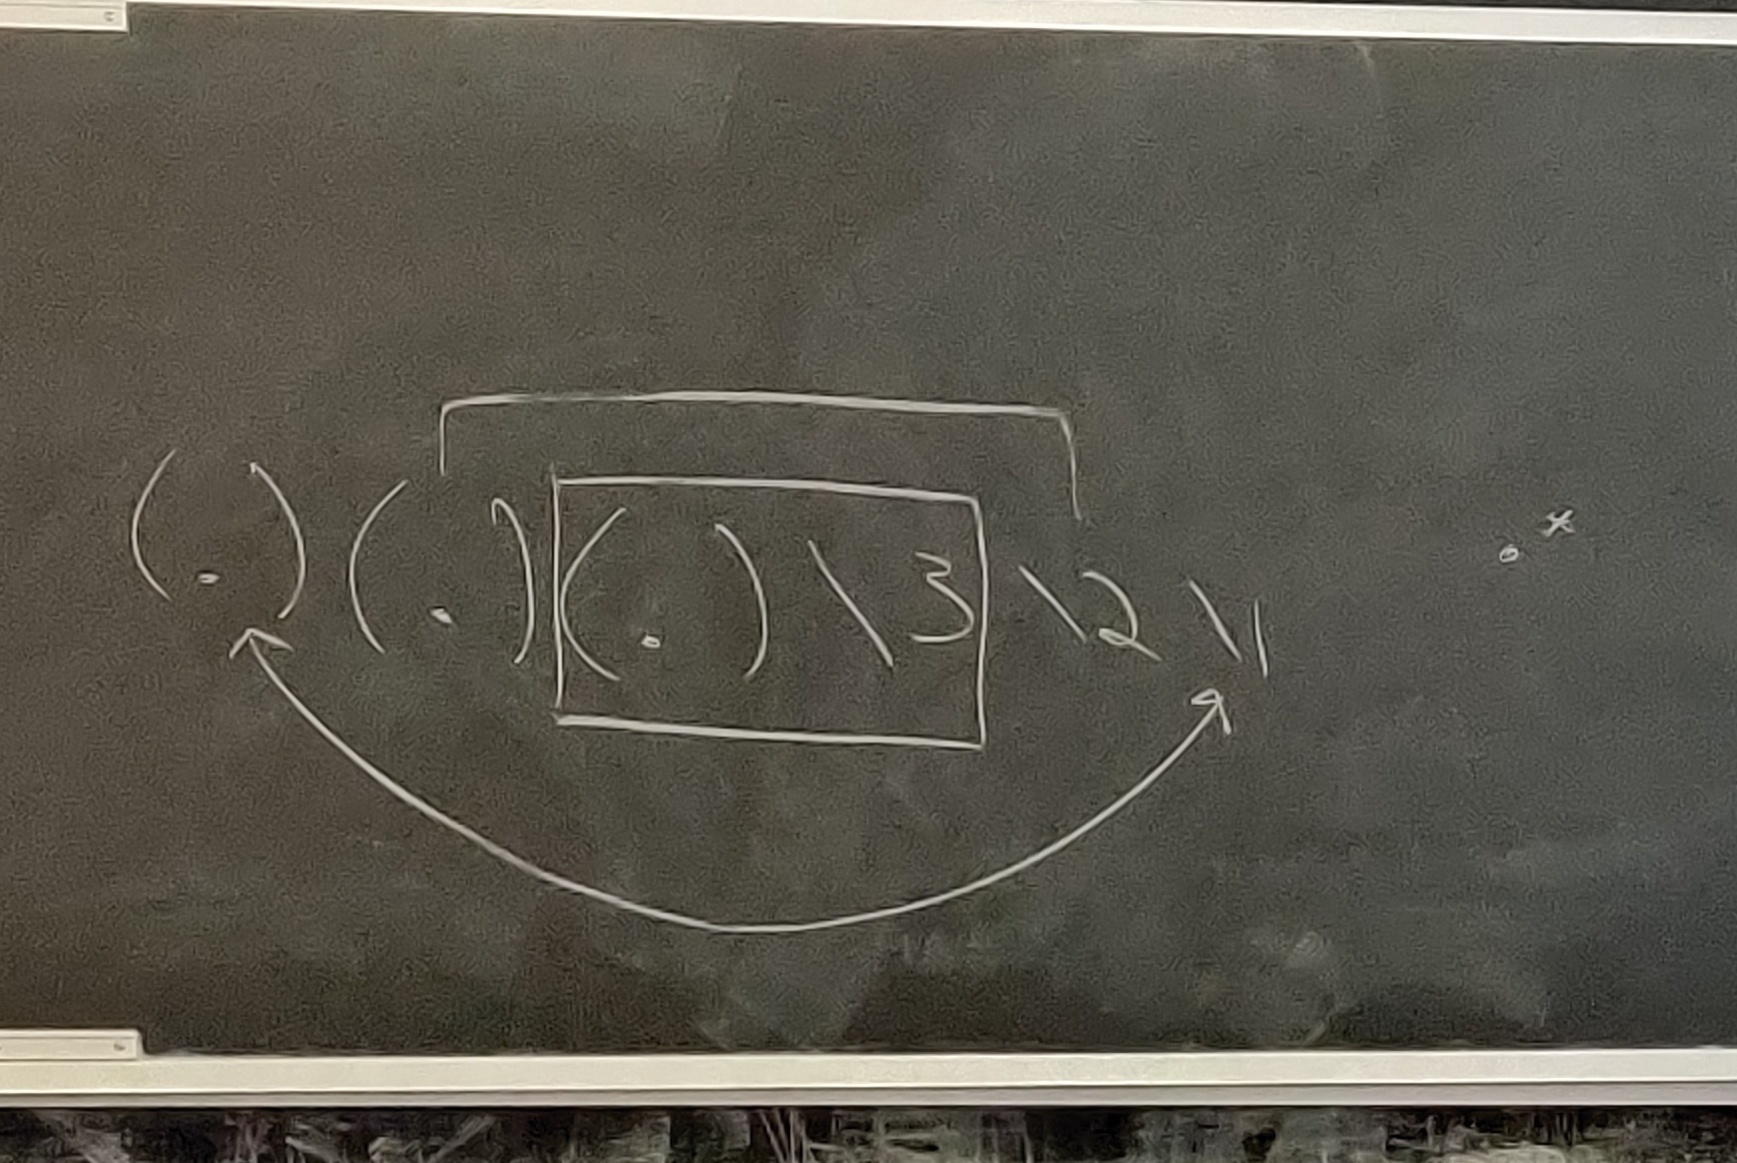 (.)(.)(.)\3\2\1 .*